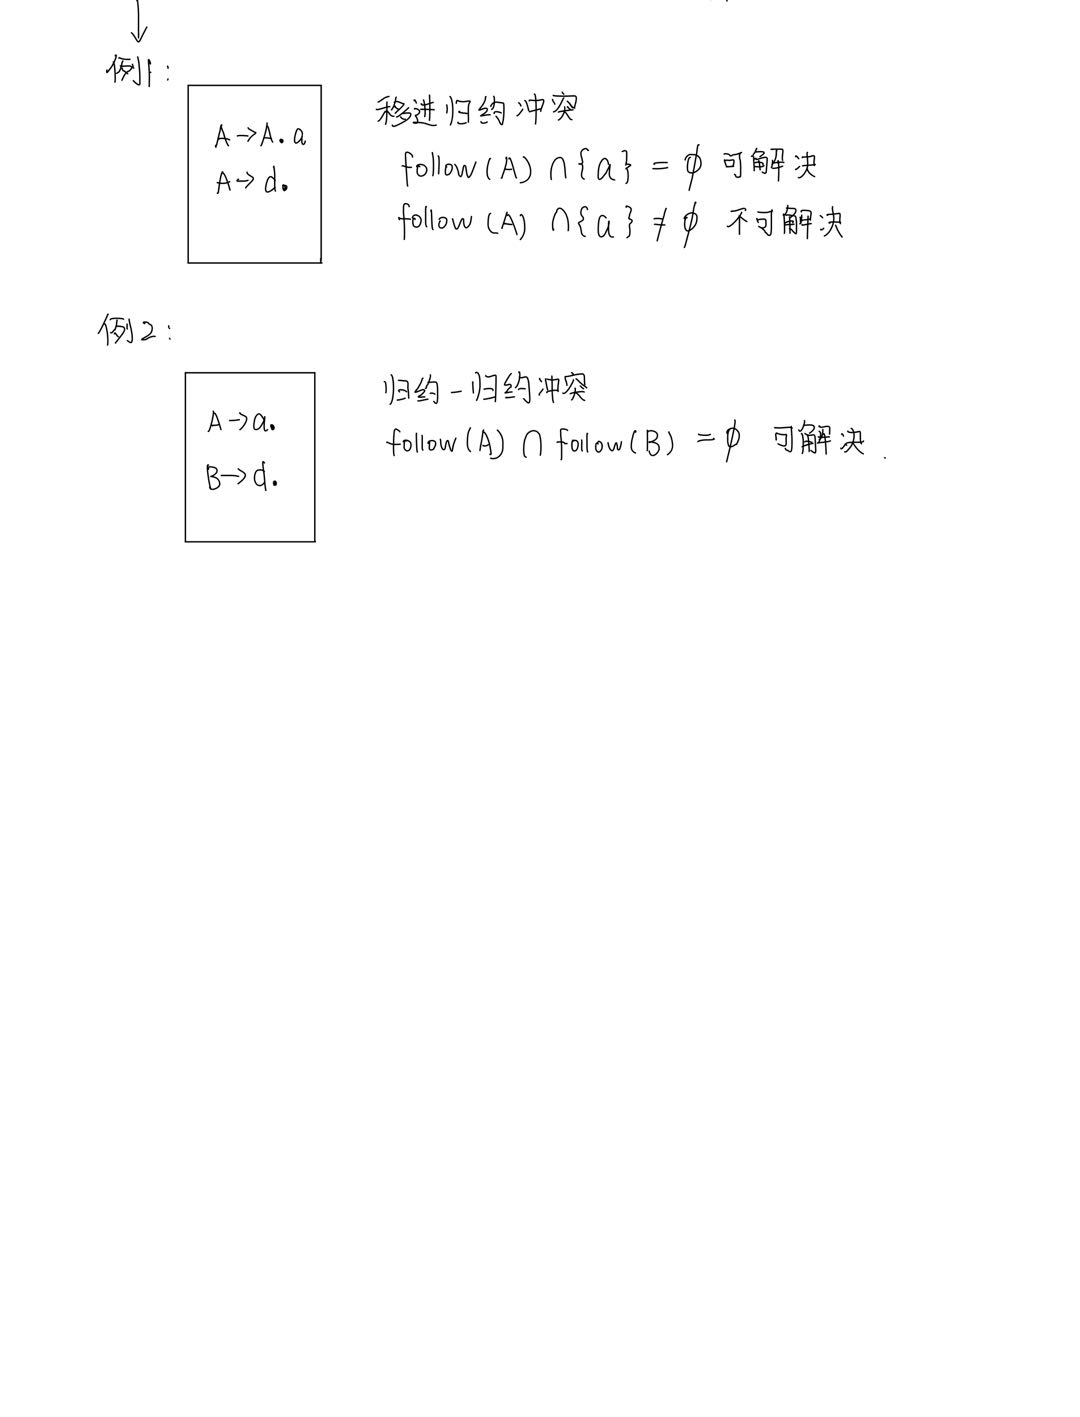 例1:
A→A.a
A→d.
移进归约冲突
follow(A)∩{a}=ϕ 可解决
follow(A)∩{a}≠ϕ 不可解决
例2:
A→a.
B→d.
归约-归约冲突
follow(A)∩follow(B)=ϕ 可解决.